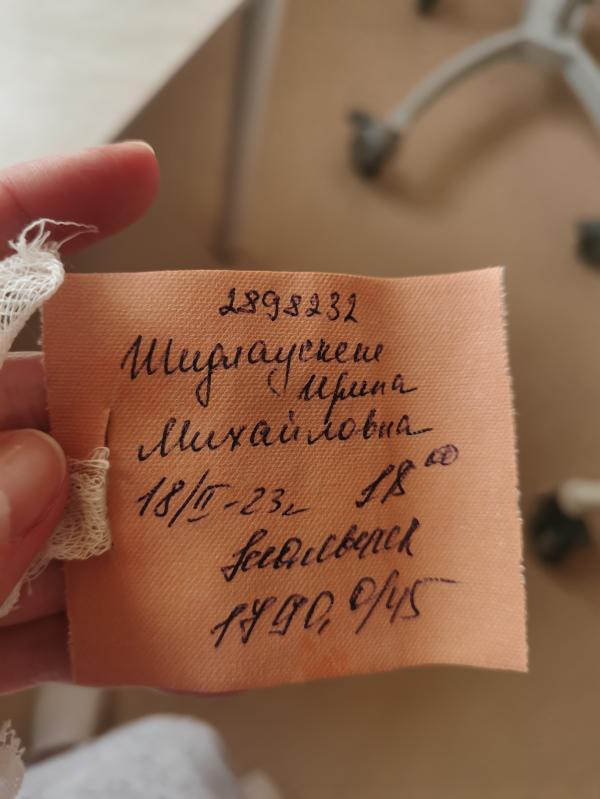 2898232
Шидлаускене
Ирина
Михайловна
18/II-23г 18⁰⁰
мальчик
1790, 0/45